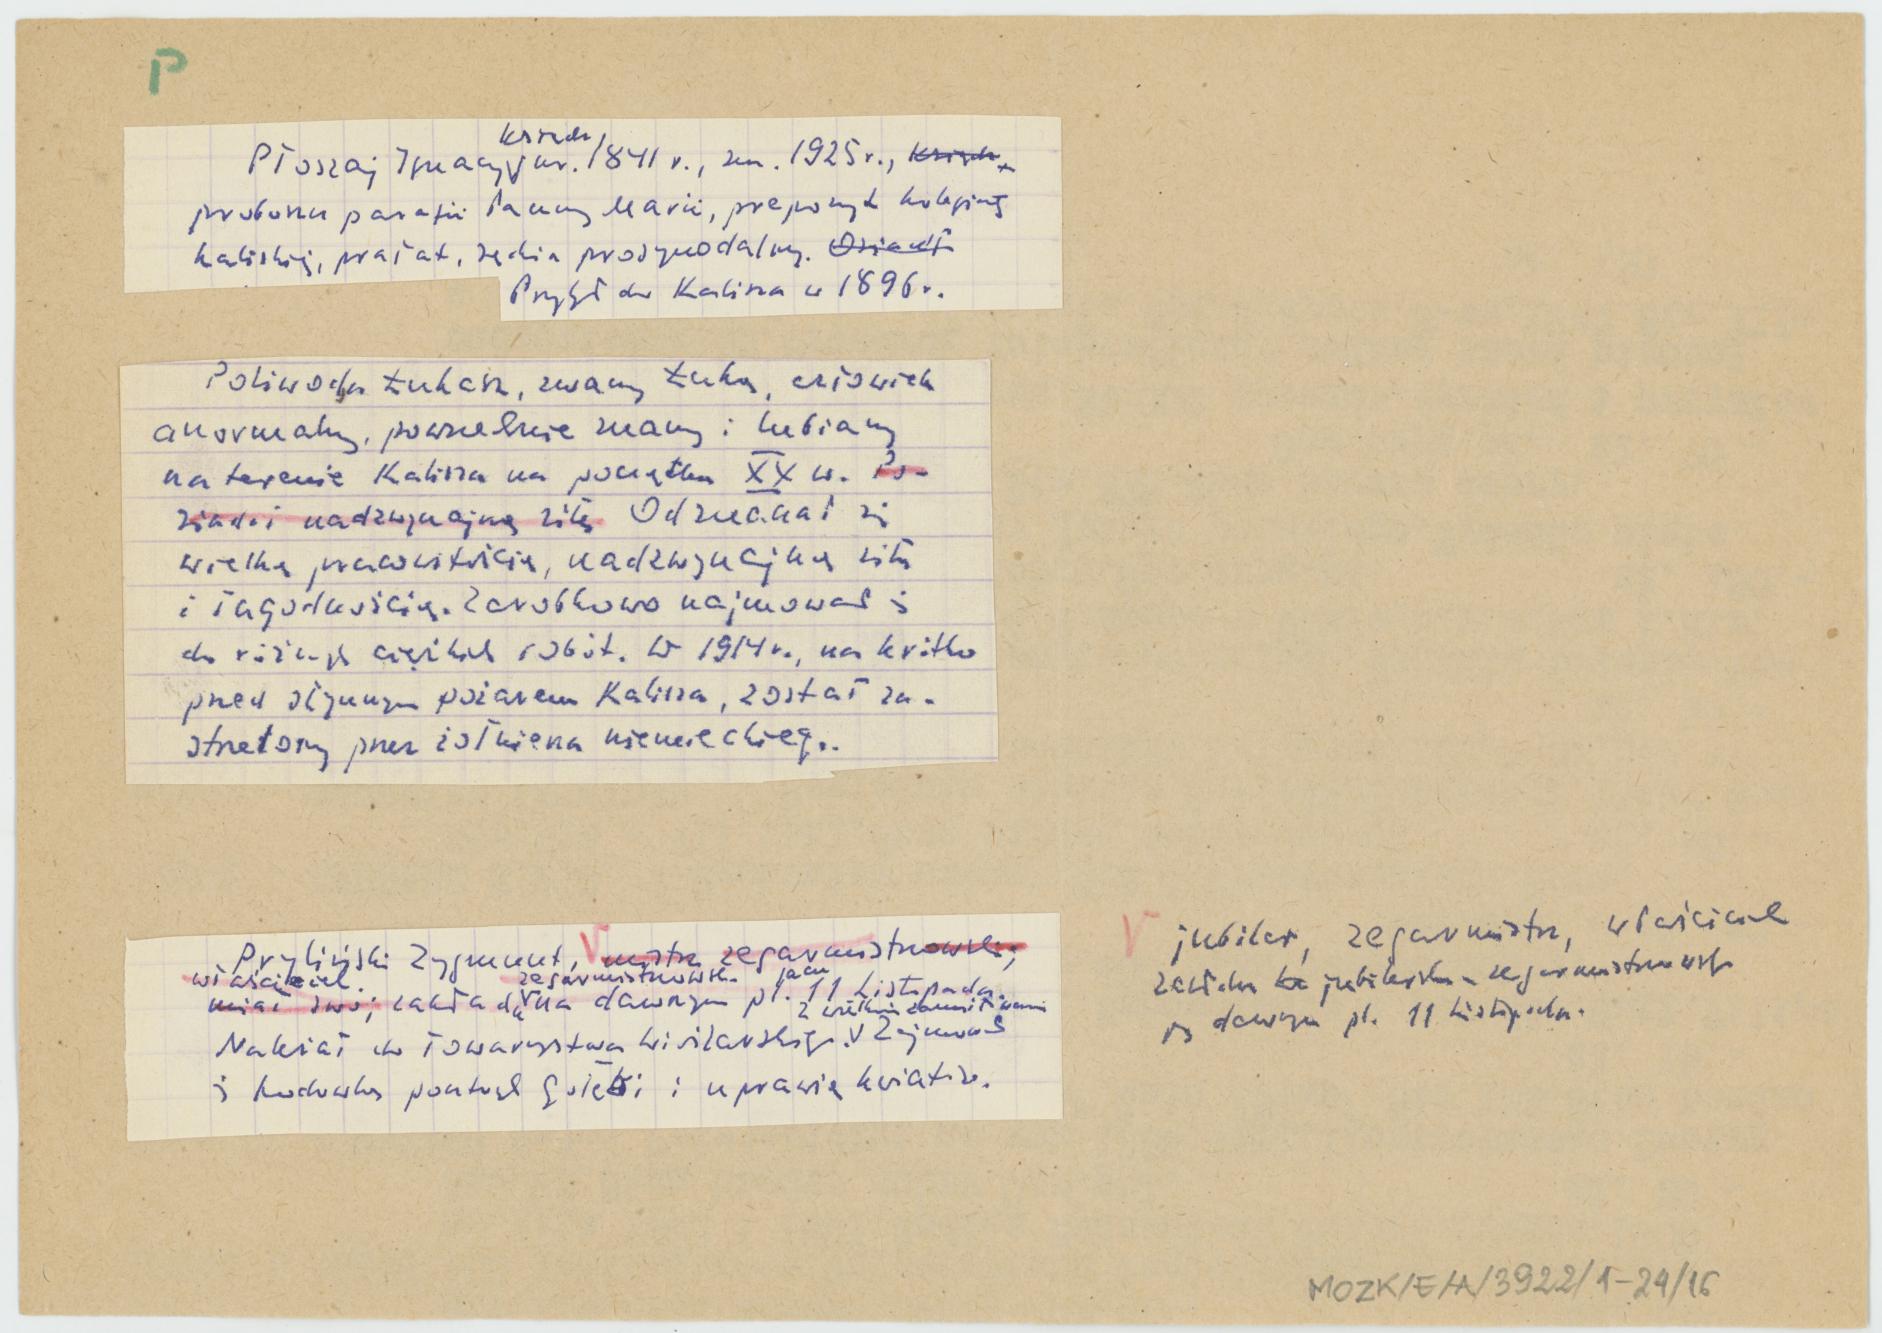 P
ksiądz
Płoszaj Ignacy ur. 1841 r., zm. 1925 r., ksiądz,
proboszcz parafii Panny Marii, prepozyt kolegiaty
kaliskiej, prałat, sędzia prosynodalny. Osiadł
Przybył do Kalisza w 1896 r.
Poliwoda Łukasz, zwany Łuką, człowiek
anormalny, powszechnie znany i lubiany
na terenie Kalisza na początku XX w. Po-
siadał nadzwyczajną siłę Odznaczał się
wielką pracowitością, nadzwyczajną siłą
i łagodnością. Zarobkowo najmował się
do różnych ciężkich robót. W 1914 r., na krótko
przed słynnym pożarem Kalisza, został za-
strzelony przez żołnierza niemieckiego.
Prylińśki Zygmunt, V mistrz zegarmistrzowski,
właściciel zegarmistrzowsk.
miał swój zakład V na dawnym pl. 11 Listopada.
z wielkim zamiłowaniem
Należał do Towarzystwa Wioślarskiego. V Zajmował
się hodowlą pocztowych gołębi i uprawą kwiatów.
V jubiler, zegarmistrz, właściciel
zakładu jubilersko-zegarmistrzowskiego
przy dawnym pl. 11 Listopada.
MOZK/E/A/3922/1-24/16